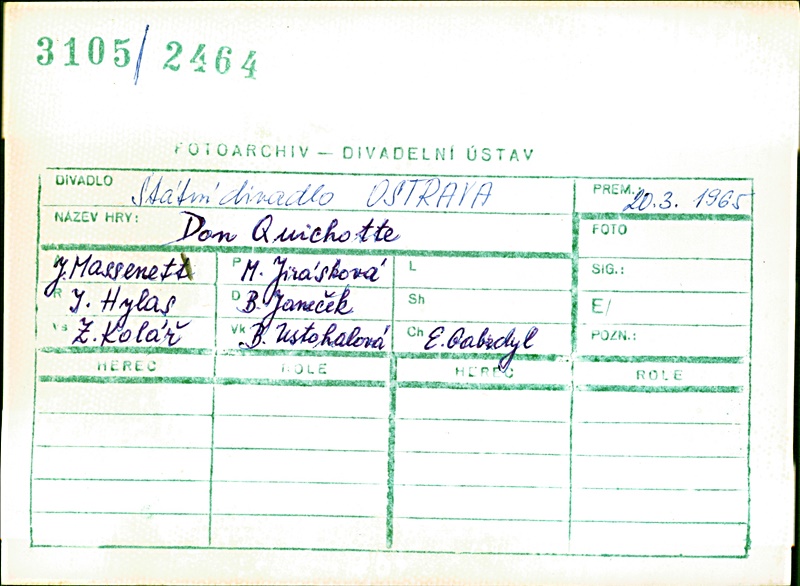 3105/2464
FOTOARCHIV — DIVADELNÍ ÚSTAV
DIVADLO Státní divadlo OSTRAVA PREM.: 20.3. 1965
NÁZEV HRY: Don Quichotte FOTO
J. Massenett P M. Jirásková L SIG.:
R J. Hylas D B. Janeček Sh E/
Vs Z. Kolář Vk B. Ustohalová Ch E. Gabzdyl POZN.:
HEREC ROLE HEREC ROLE